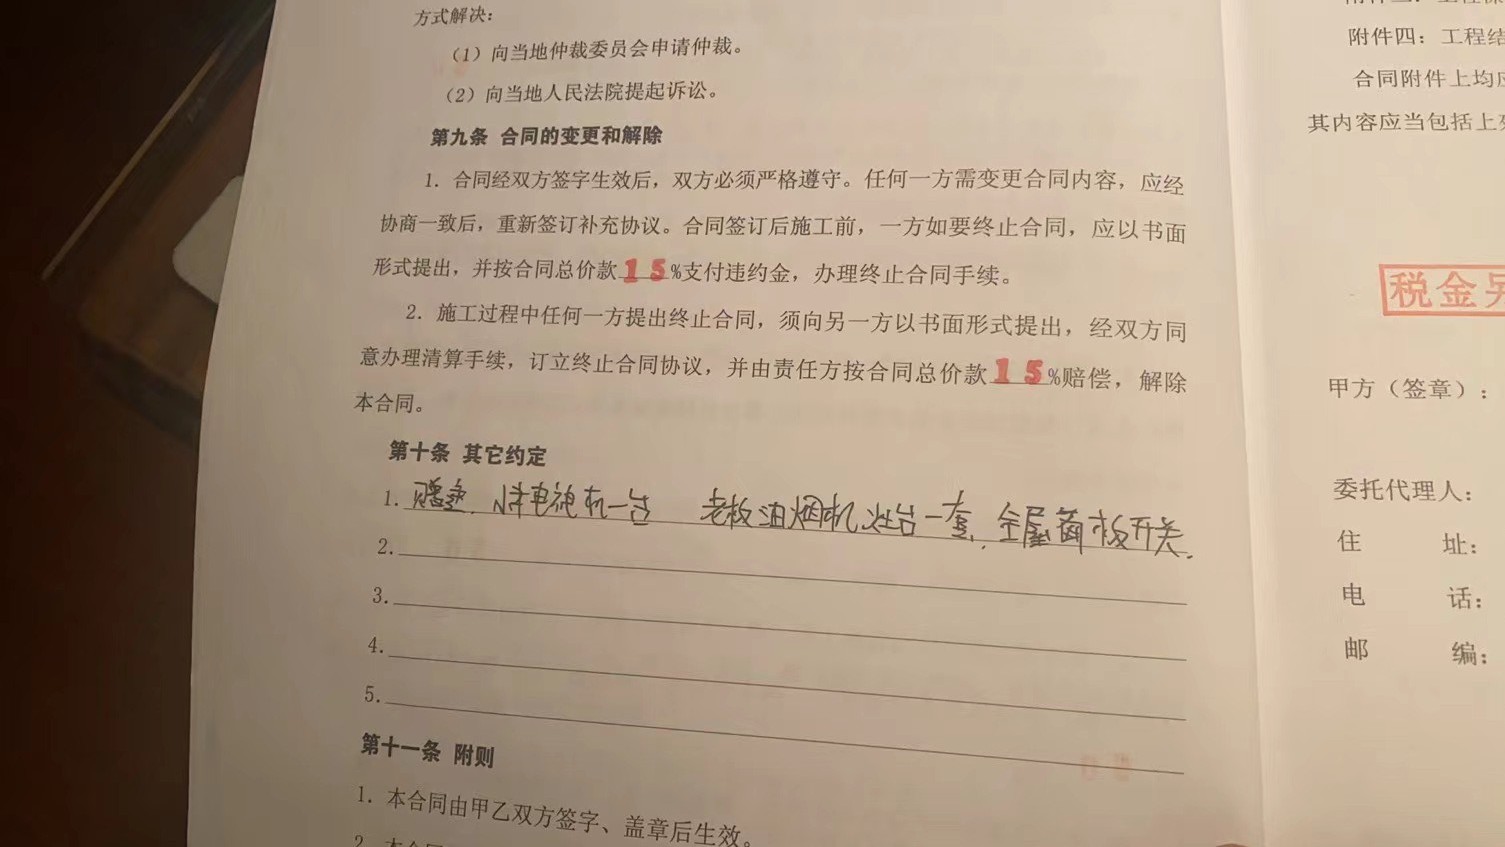 方式解决：
（1）向当地仲裁委员会申请仲裁。
（2）向当地人民法院提起诉讼。
第九条 合同的变更和解除
1. 合同经双方签字生效后，双方必须严格遵守。任何一方需变更合同内容，应经
协商一致后，重新签订补充协议。合同签订后施工前，一方如要终止合同，应以书面
形式提出，并按合同总价款15%支付违约金，办理终止合同手续。
2. 施工过程中任何一方提出终止合同，须向另一方以书面形式提出，经双方同
意办理清算手续，订立终止合同协议，并由责任方按合同总价款15%赔偿，解除
本合同。
第十条 其它约定
1. 赠送 电视机一台 老板油烟机灶台一套，全屋面板开关.
2.
3.
4.
5.
第十一条 附则
1. 本合同由甲乙双方签字、盖章后生效。
2. 本合同
附件四：工程结
合同附件上均应
其内容应当包括上
税金另
甲方（签章）：
委托代理人：
住 址：
电 话：
邮 编：